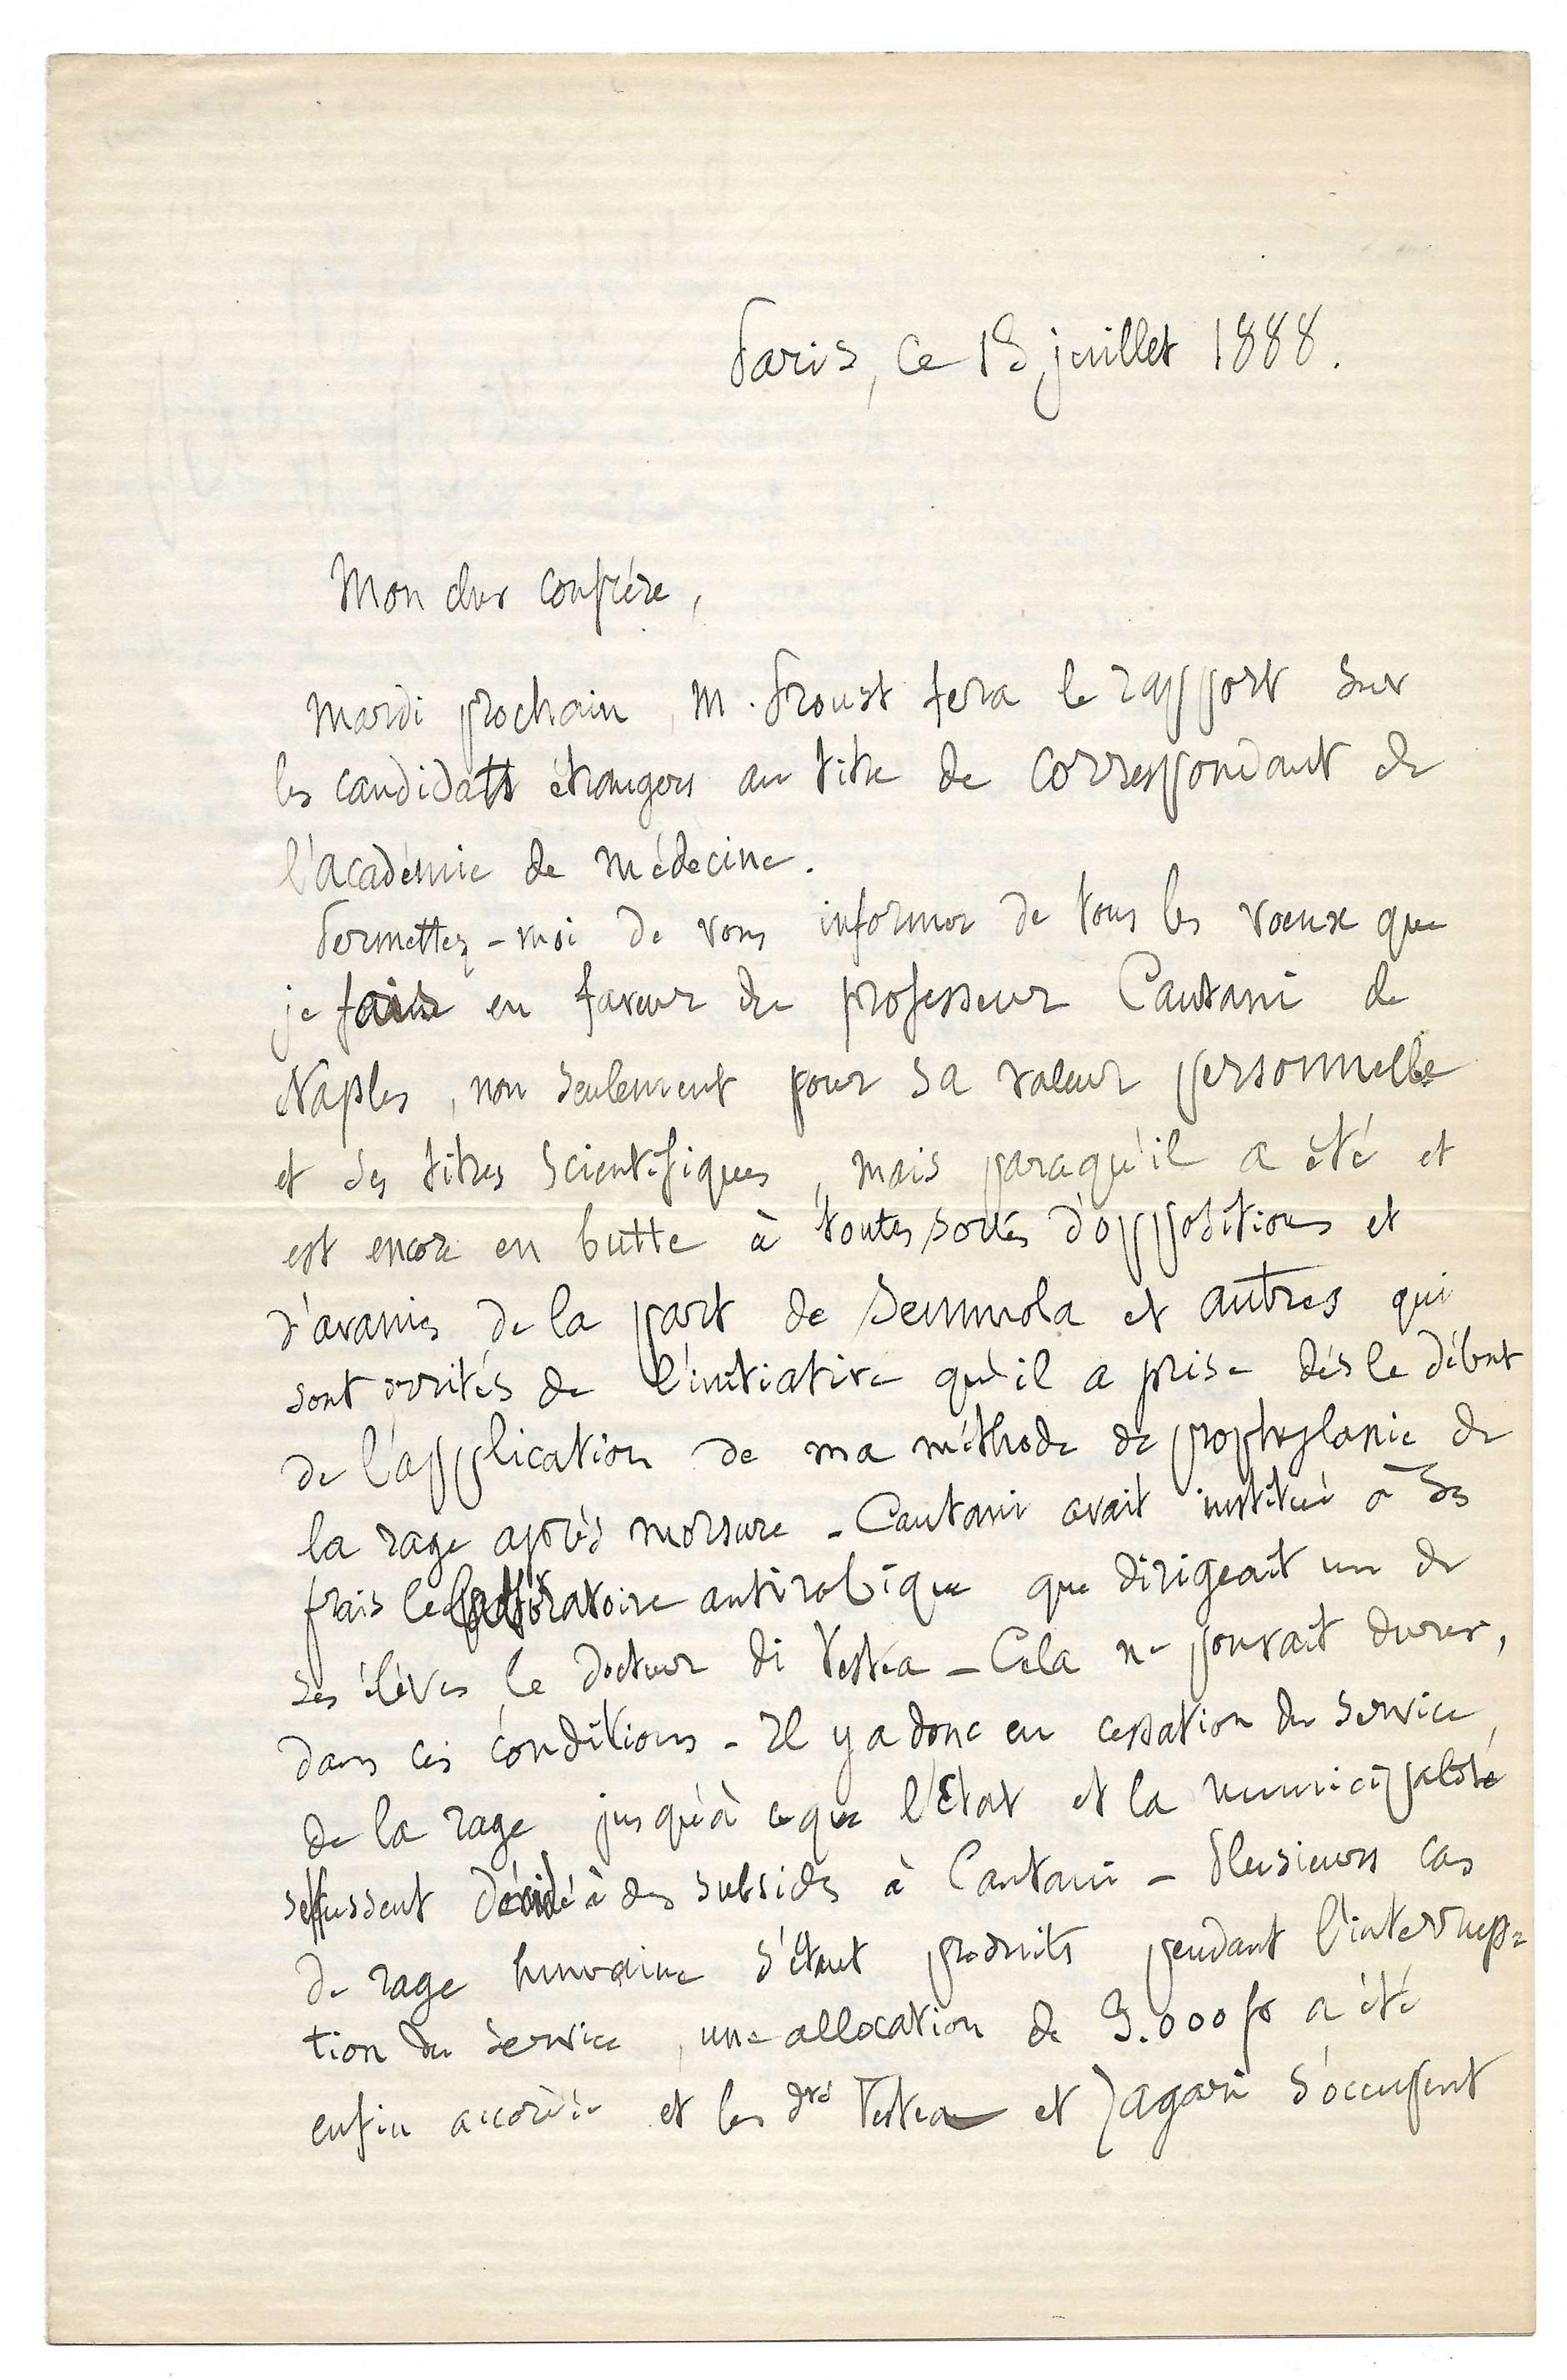 Paris, ce 18 juillet 1888.
Mon cher confrère,
Mardi prochain, M. Proust fera le rapport sur
les candidats étrangers au titre de correspondant de
l'académie de médecine.
Permettez-moi de vous informer de tous les vœux que
je fais en faveur du professeur Cantani de
Naples, non seulement pour sa valeur personnelle
et ses titres scientifiques, mais parcequ'il a été et
est encore en butte à toutes sortes d'oppositions et
d'avanies de la part de Semmola et autres qui
sont irrités de l'initiative qu'il a prise dès le début
de l'application de ma méthode de prophylaxie de
la rage après morsure - Cantani avait institué à ses
frais le laboratoire antirabique que dirigeait un de
ses élèves le docteur di Vestea - Cela ne pouvait durer,
dans ces conditions - Il y a donc eu cessation du service,
de la rage jusqu'à ce que l'État et la municipalité
se fussent décidé à des subsides à Cantani - Plusieurs cas
de rage humaine s'étant produits pendant l'interrup=
tion du service, une allocation de 9.000 fr a été
enfin accordée et les drs Vestea et Zagari s'occupent